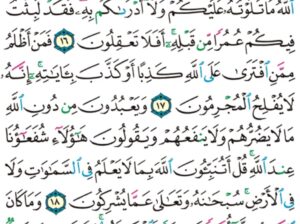 ٱللَّهُ مَا تَلَوْتُهُۥ عَلَيْكُمْ وَلَآ أَدْرَىٰكُم بِهِۦ ۖ فَقَدْ لَبِثْتُ
فِيكُمْ عُمُرًا مِّن قَبْلِهِۦٓ ۚ أَفَلَا تَعْقِلُونَ ١٦ فَمَنْ أَظْلَمُ
مِمَّنِ ٱفْتَرَىٰ عَلَى ٱللَّهِ كَذِبًا أَوْ كَذَّبَ بِـَٔايَـٰتِهِۦٓ ۚ إِنَّهُۥ
لَا يُفْلِحُ ٱلْمُجْرِمُونَ ١٧ وَيَعْبُدُونَ مِن دُونِ ٱللَّهِ
مَا لَا يَضُرُّهُمْ وَلَا يَنفَعُهُمْ وَيَقُولُونَ هَـٰٓؤُلَآءِ شُفَعَـٰٓؤُنَا
عِندَ ٱللَّهِ ۚ قُلْ أَتُنَبِّـُٔونَ ٱللَّهَ بِمَا لَا يَعْلَمُ فِى ٱلسَّمَـٰوَٰتِ وَلَا
فِى ٱلْأَرْضِ ۚ سُبْحَـٰنَهُۥ وَتَعَـٰلَىٰ عَمَّا يُشْرِكُونَ ١٨ وَمَا كَانَ